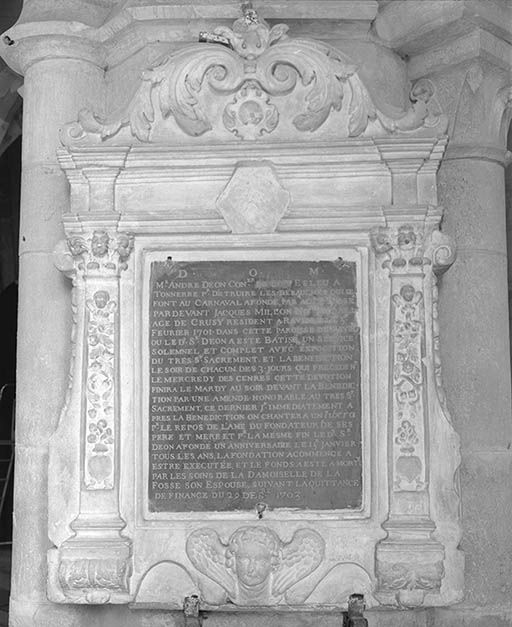 D. O. M.
Mr. ANDRE DEON CONer. ESLEU A
TONNERRE Pr. DETRUIRE LES DEBAUCHES QUI SE
FONT AU CARNAVAL A FONDE PAR ACTE PASSE
PARDEVANT JACQUES
AGE DE CRUSY RESIDENT A
FEURIER 1701 DANS CETTE PAROISSE
OU LED. Sr. DEON A ESTE BATISE UN
SOLEMNEL ET COMPLET AVEC EXPOSITION
DU TRES St. SACREMENT, ET LA BENEDICTION
LE SOIR DE CHACUN DES 3 JOURS QUI PRECEDENT
LE MERCREDY DES CENRES CETTE DEVOTION
FINIRA LE MARDY AU SOIR DEVANT LA BENEDIC
TION PAR UNE AMENDE HONORABLE AU TRES St.
SACREMENT, CE DERNIER Jr. IMMEDIATEMENT A
PRES LA BENEDICTION ON CHANTERA UN
Pr. LE REPOS DE L'AME DU FONDATEUR DE SES
PERE ET MERE ET Pr. LA MESME FIN LED. Sr.
DEON A FONDE UN ANNIVERSAIRE LE JANVIER
TOUS LES ANS, LA FONDATION A COMMENCE A
ESTRE EXECUTÉE, ET LE FONDS A ESTE AMORTI
PAR LES SOINS DE LA DAMOISELLE DE LA
FOSSE SON ESPOUSE, SUIVANT LA QUITTANCE
DE FINANCE DU 29 DEC. 1703